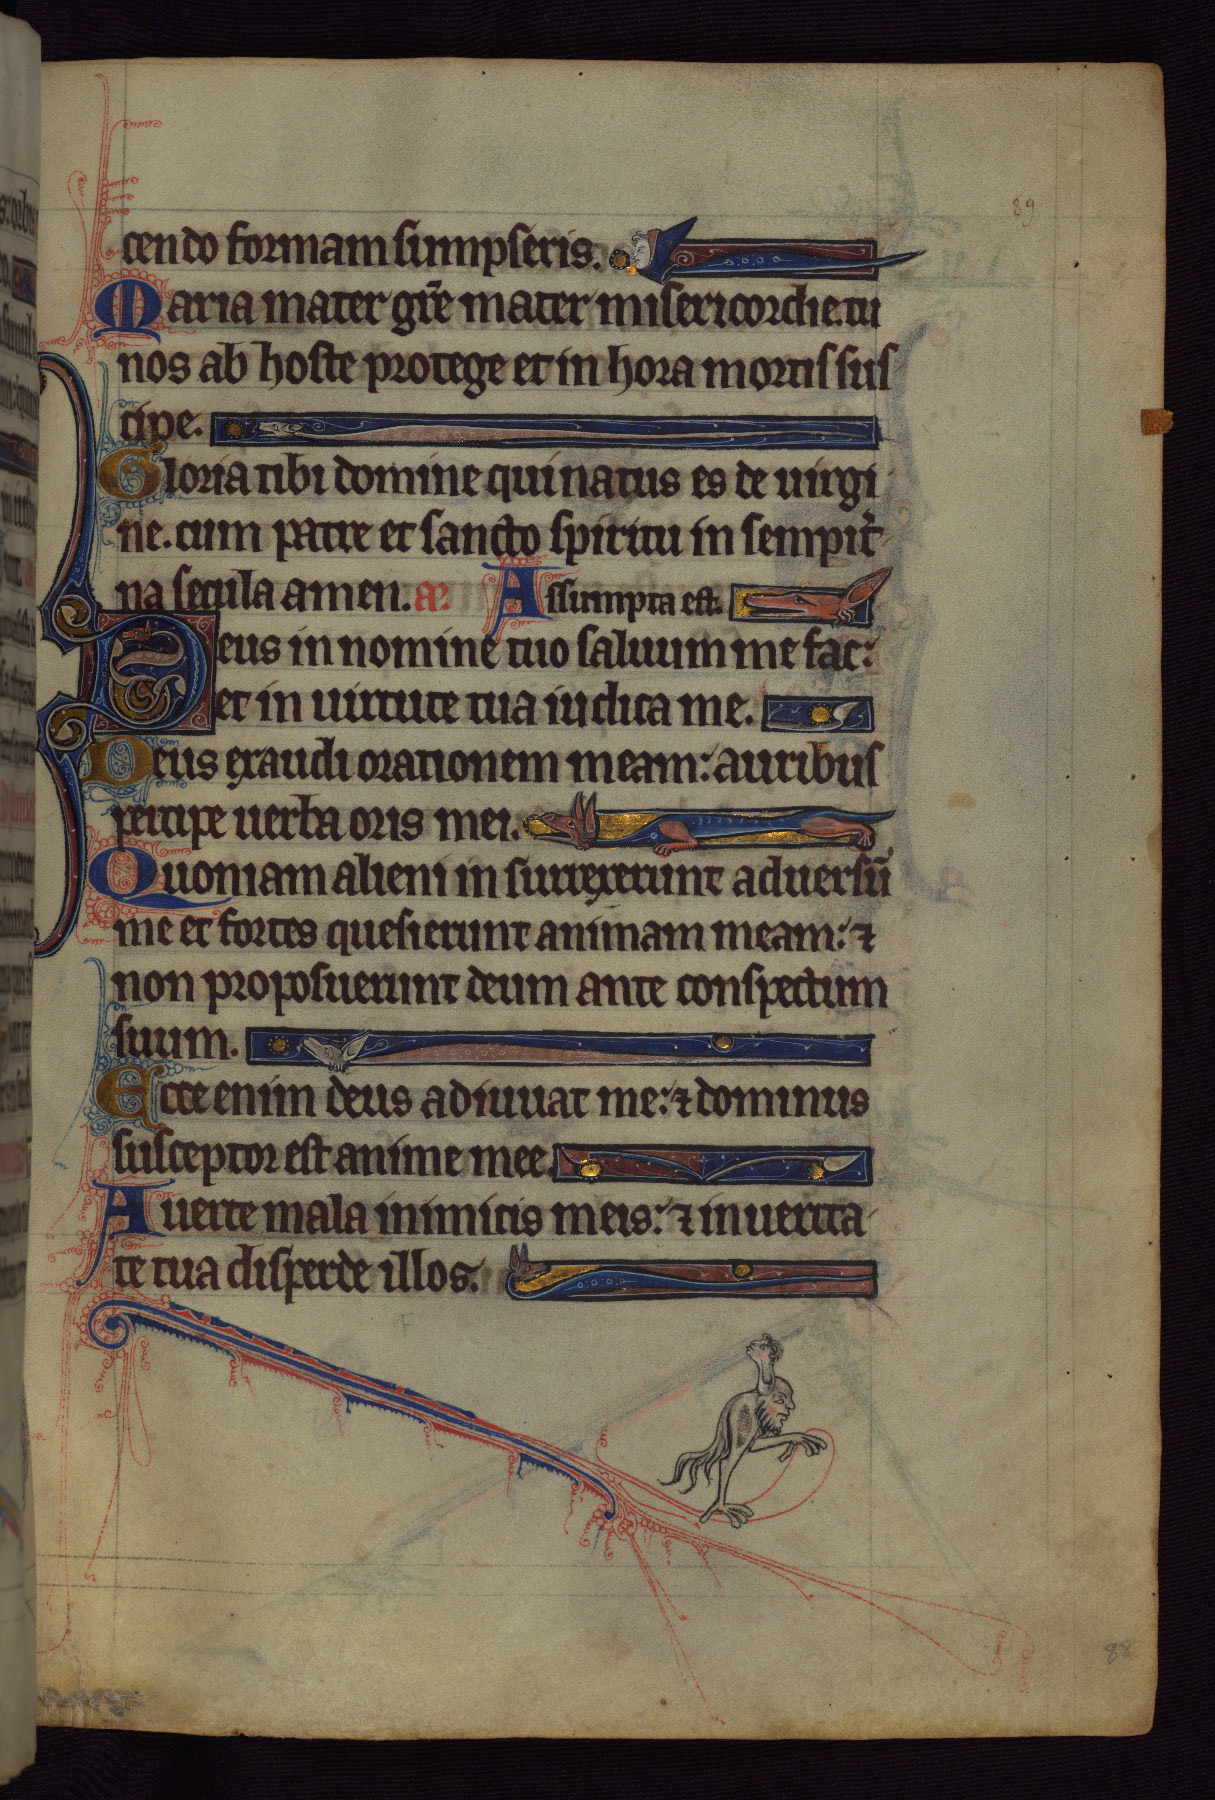 89
cendo formam sumpseris.
Maria mater gr̄e mater misericordie. tu
nos ab hoste protege et in hora mortis sus
cipe.
Gloria tibi domine qui natus es de uirgi
ne. cum patre et sancto spiritu in sempit̾
na secula amen. añ. Assumpta est.
Deus in nomine tuo saluum me fac:
et in uirtute tua iudica me.
Deus exaudi orationem meam: auribus
percipe uerba oris mei.
Quoniam alieni in surrexerunt aduersū
me et fortes quesierunt animam meam: ⁊
non proposuerunt deum ante conspectum
suum.
Ecce enim deus adiuuat me: ⁊ dominus
susceptor est anime mee.
Auerte mala inimicis meis: ⁊ in uerita
te tua disperde illos.
88